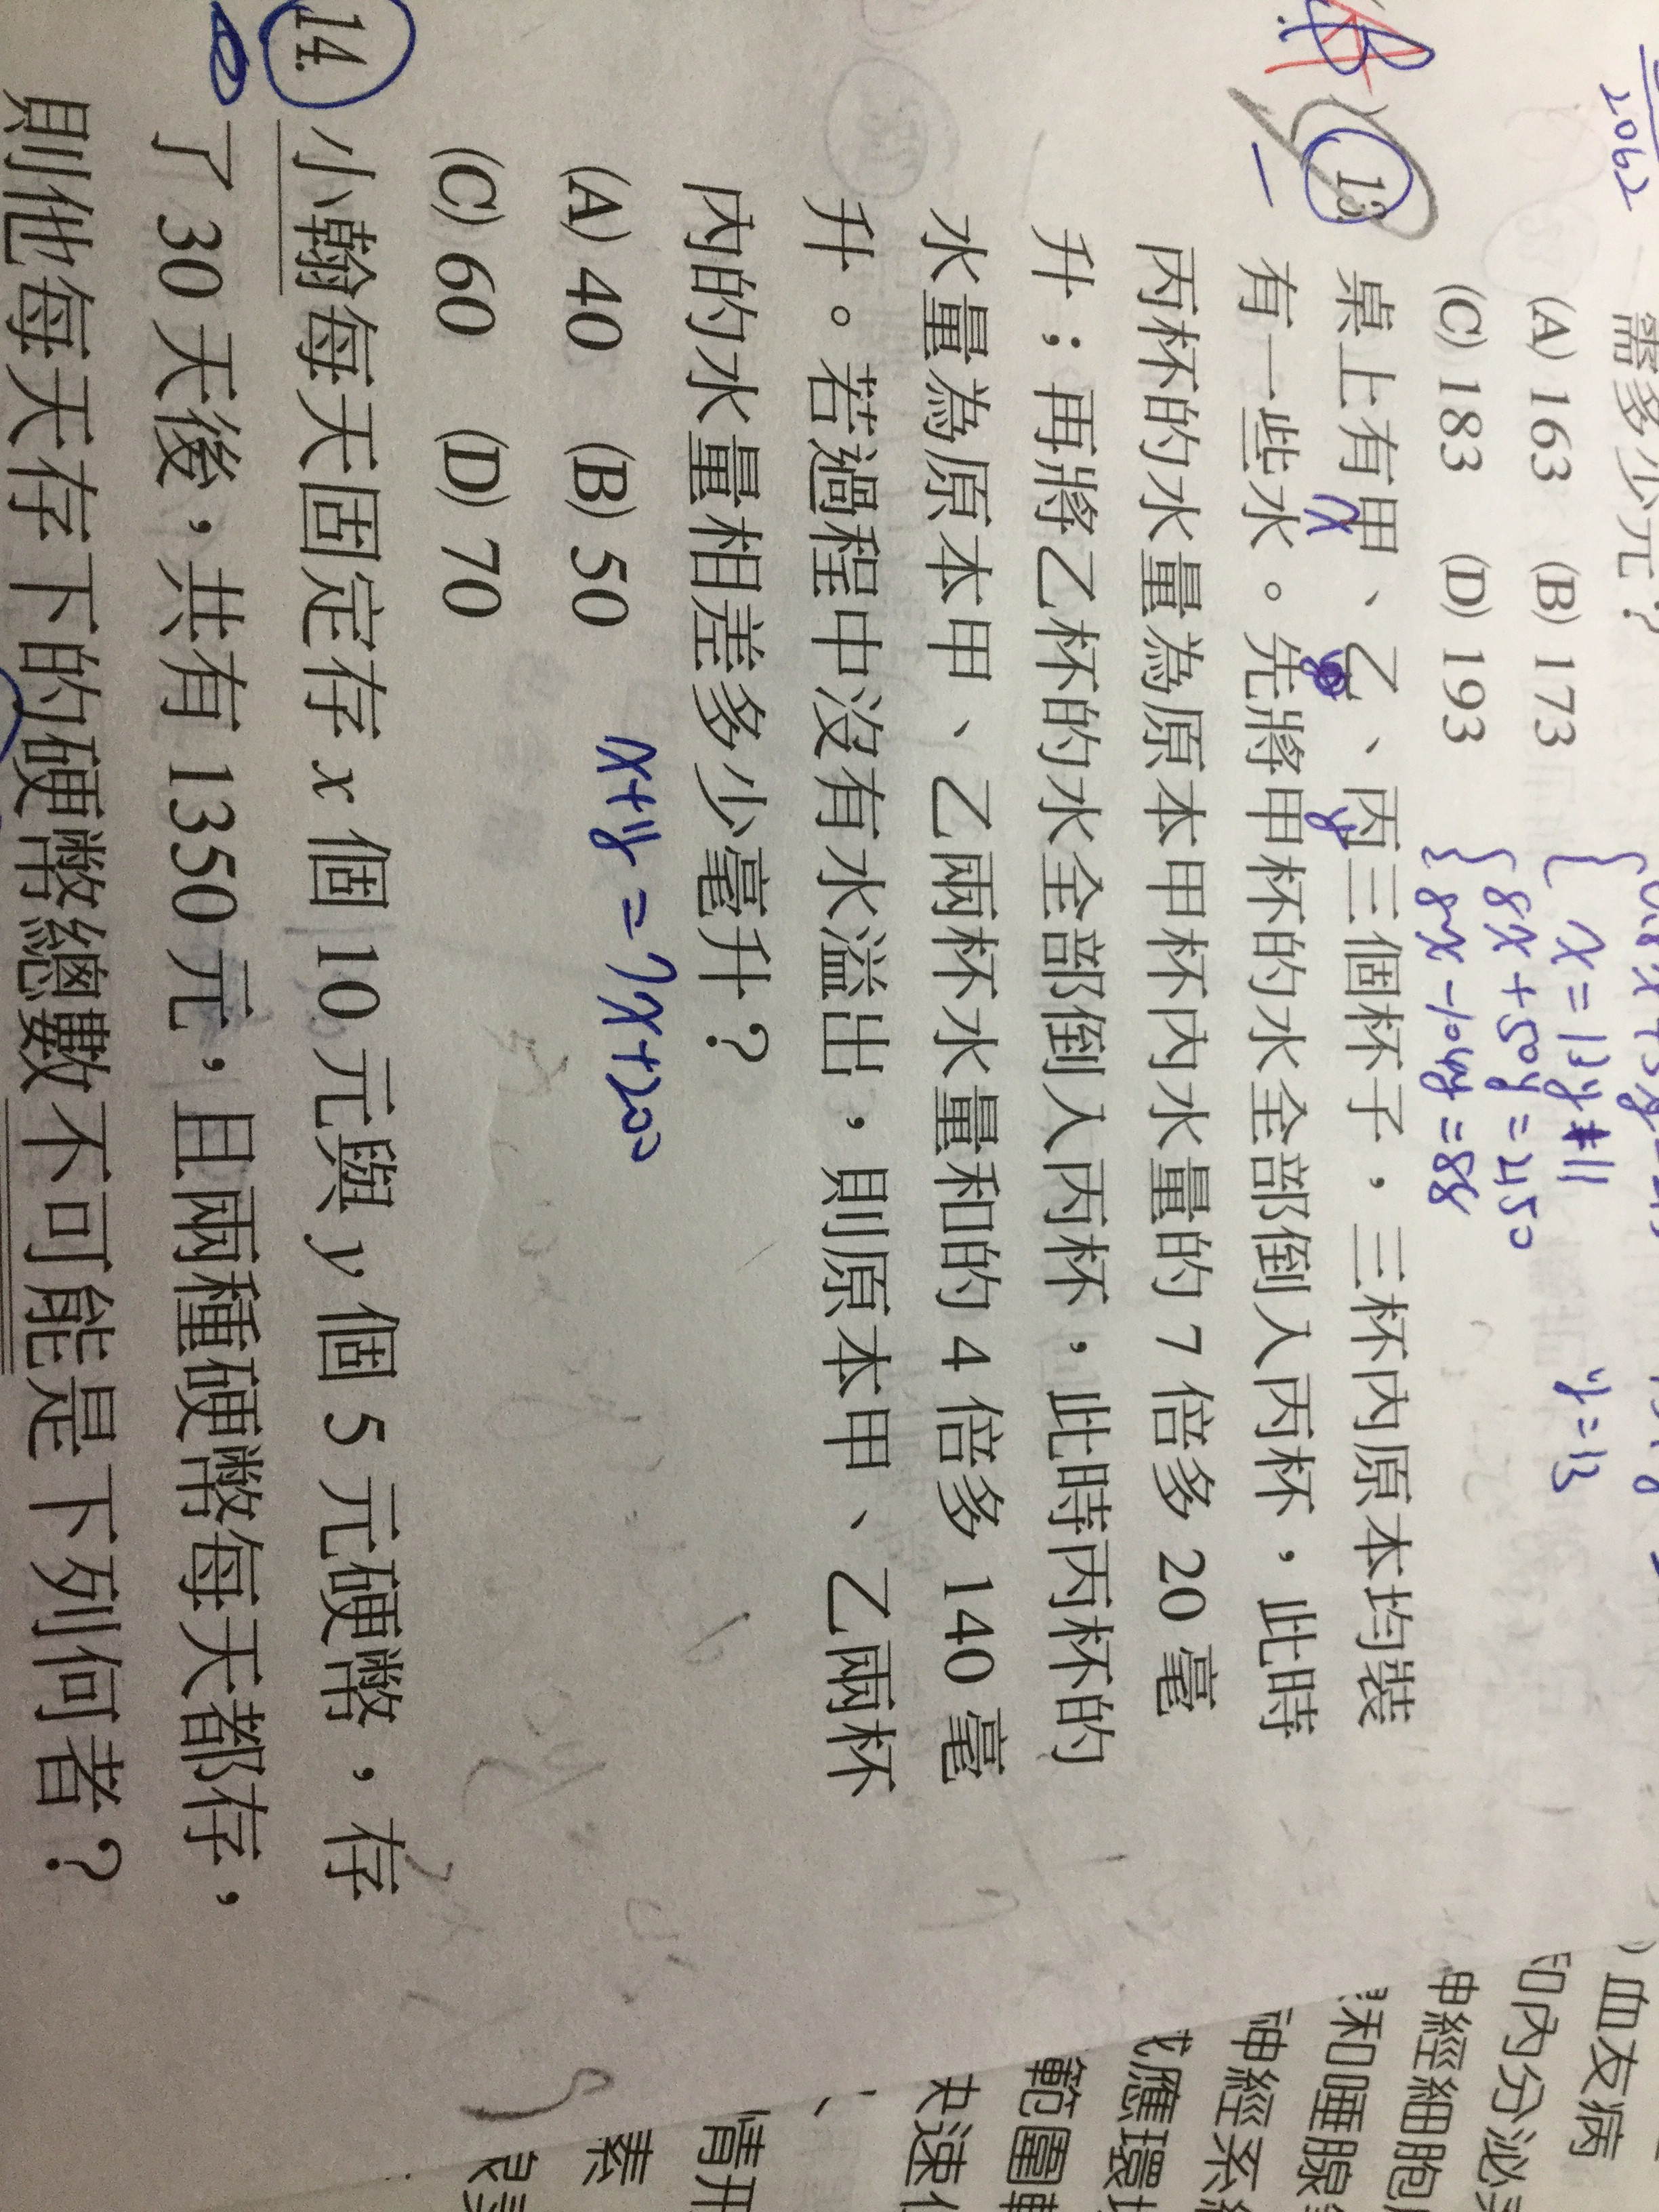 2062
需多少元？
(A) 163 (B) 173
(C) 183 (D) 193
x = 13
8x + 50y = 450
y = 13
13. 桌上有甲、乙、丙三個杯子，三杯內原本均裝
有一些水。先將甲杯的水全部倒入丙杯，此時
丙杯的水量為原本甲杯內水量的 7 倍多 20 毫
升；再將乙杯的水全部倒入丙杯，此時丙杯的
水量為原本甲、乙兩杯水量和的 4 倍多 140 毫
升。若過程中沒有水溢出，則原本甲、乙兩杯
內的水量相差多少毫升？
(A) 40 (B) 50
(C) 60 (D) 70
x
y
x+y = 7x+20
14. 小翰每天固定存 x 個 10 元與 y 個 5 元硬幣，存
了 30 天後，共有 1350 元，且兩種硬幣每天都存，
則他每天存下的硬幣總數不可能是下列何者？
血友病
和內分泌
申經細胞
和唾腺
神經系
應環
範圍
速